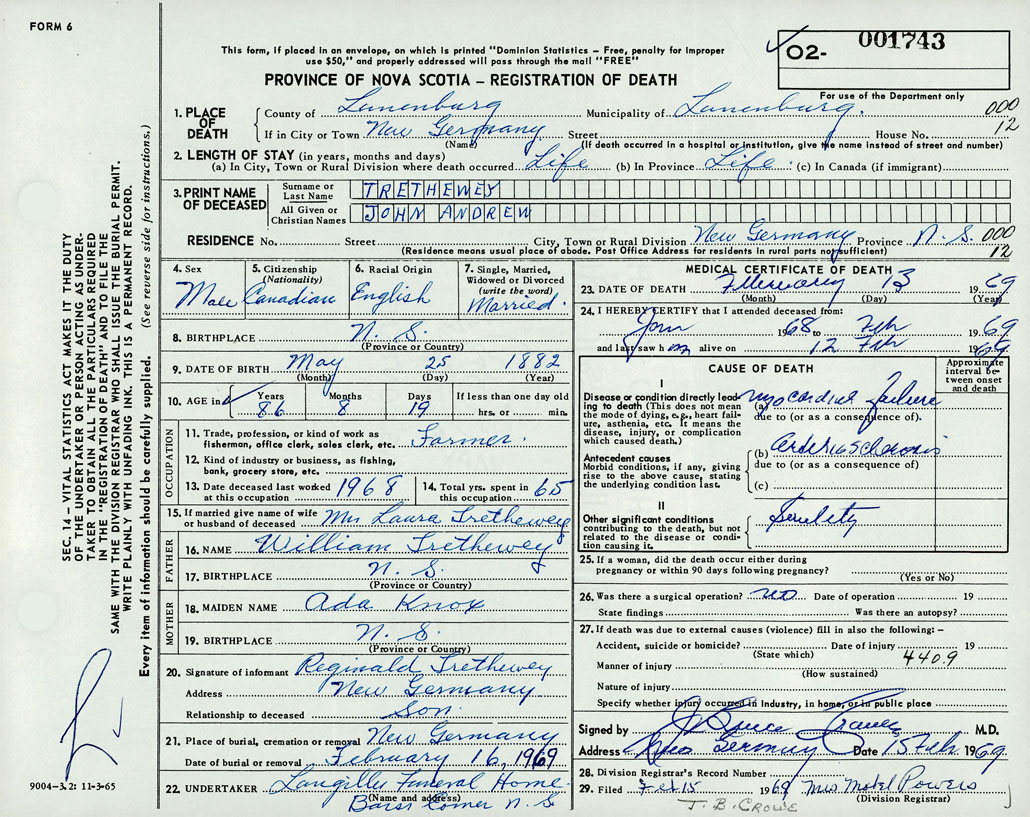 FORM 6
This form, if placed in an envelope, on which is printed "Dominion Statistics – Free, penalty for improper
use $50," and properly addressed will pass through the mail "FREE"
PROVINCE OF NOVA SCOTIA – REGISTRATION OF DEATH
O2- 001743
For use of the Department only
1. PLACE OF DEATH County of Lunenburg Municipality of Lunenburg. 000
If in City or Town New Germany Street House No. 12
(Name) (If death occurred in a hospital or institution, give the name instead of street and number)
2. LENGTH OF STAY (in years, months and days)
(a) In City, Town or Rural Division where death occurred Life (b) In Province Life (c) In Canada (if immigrant)
3. PRINT NAME OF DECEASED Surname or Last Name TRETHEWEY
All Given or Christian Names JOHN ANDREW
RESIDENCE No. Street City, Town or Rural Division New Germany Province N. S. 000
(Residence means usual place of abode. Post Office Address for residents in rural parts not sufficient) 12
4. Sex Male
5. Citizenship (Nationality) Canadian
6. Racial Origin English
7. Single, Married, Widowed or Divorced (write the word) Married.
8. BIRTHPLACE N. S.
(Province or Country)
9. DATE OF BIRTH May 25 1882
(Month) (Day) (Year)
10. AGE in Years 86 Months 8 Days 19 If less than one day old hrs. or min.
OCCUPATION
11. Trade, profession, or kind of work as fisherman, office clerk, sales clerk, etc. Farmer.
12. Kind of industry or business, as fishing, bank, grocery store, etc.
13. Date deceased last worked at this occupation 1968 14. Total yrs. spent in this occupation 65
15. If married give name of wife or husband of deceased Mrs Laura Trethewey
FATHER
16. NAME William Trethewey
17. BIRTHPLACE N. S.
(Province or Country)
MOTHER
18. MAIDEN NAME Ada Knox
19. BIRTHPLACE N. S.
(Province or Country)
20. Signature of informant Reginald Trethewey
Address New Germany
Relationship to deceased Son.
21. Place of burial, cremation or removal New Germany
Date of burial or removal February 16, 1969
22. UNDERTAKER Langilles Funeral Home
(Name and address) Barss Corner N. S.
MEDICAL CERTIFICATE OF DEATH
23. DATE OF DEATH February 13 1969
(Month) (Day) (Year)
24. I HEREBY CERTIFY that I attended deceased from:
Jan 1968 to Feb 1969
and last saw him alive on 12 Feb 1969
CAUSE OF DEATH
Approximate interval between onset and death
I
Disease or condition directly leading to death (This does not mean the mode of dying, e.g., heart failure, asthenia, etc. It means the disease, injury, or complication which caused death.)
(a) myocardial failure
due to (or as a consequence of).
Antecedent causes
Morbid conditions, if any, giving rise to the above cause, stating the underlying condition last.
(b) arteriosclerosis
due to (or as a consequence of)
(c)
II
Other significant conditions contributing to the death, but not related to the disease or condition causing it.
Senility
25. If a woman, did the death occur either during pregnancy or within 90 days following pregnancy?
(Yes or No)
26. Was there a surgical operation? no Date of operation 19
State findings Was there an autopsy?
27. If death was due to external causes (violence) fill in also the following: –
Accident, suicide or homicide? Date of injury 19
(State which)
Manner of injury 4409
(How sustained)
Nature of injury
Specify whether injury occurred in industry, in home, or in public place
Signed by M.D.
Address New Germany Date 15 Feb 1969
28. Division Registrar's Record Number
29. Filed Feb 15 1969 Mrs Powers
(Division Registrar)
J. B. CROWE
SEC. 14 – VITAL STATISTICS ACT MAKES IT THE DUTY
OF THE UNDERTAKER OR PERSON ACTING AS UNDER-
TAKER TO OBTAIN ALL THE PARTICULARS REQUIRED
IN THE "REGISTRATION OF DEATH" AND TO FILE THE
SAME WITH THE DIVISION REGISTRAR WHO SHALL ISSUE THE BURIAL PERMIT.
WRITE PLAINLY WITH UNFADING INK. THIS IS A PERMANENT RECORD.
Every item of information should be carefully supplied. (See reverse side for instructions.)
9004-3.2: 11-3-65